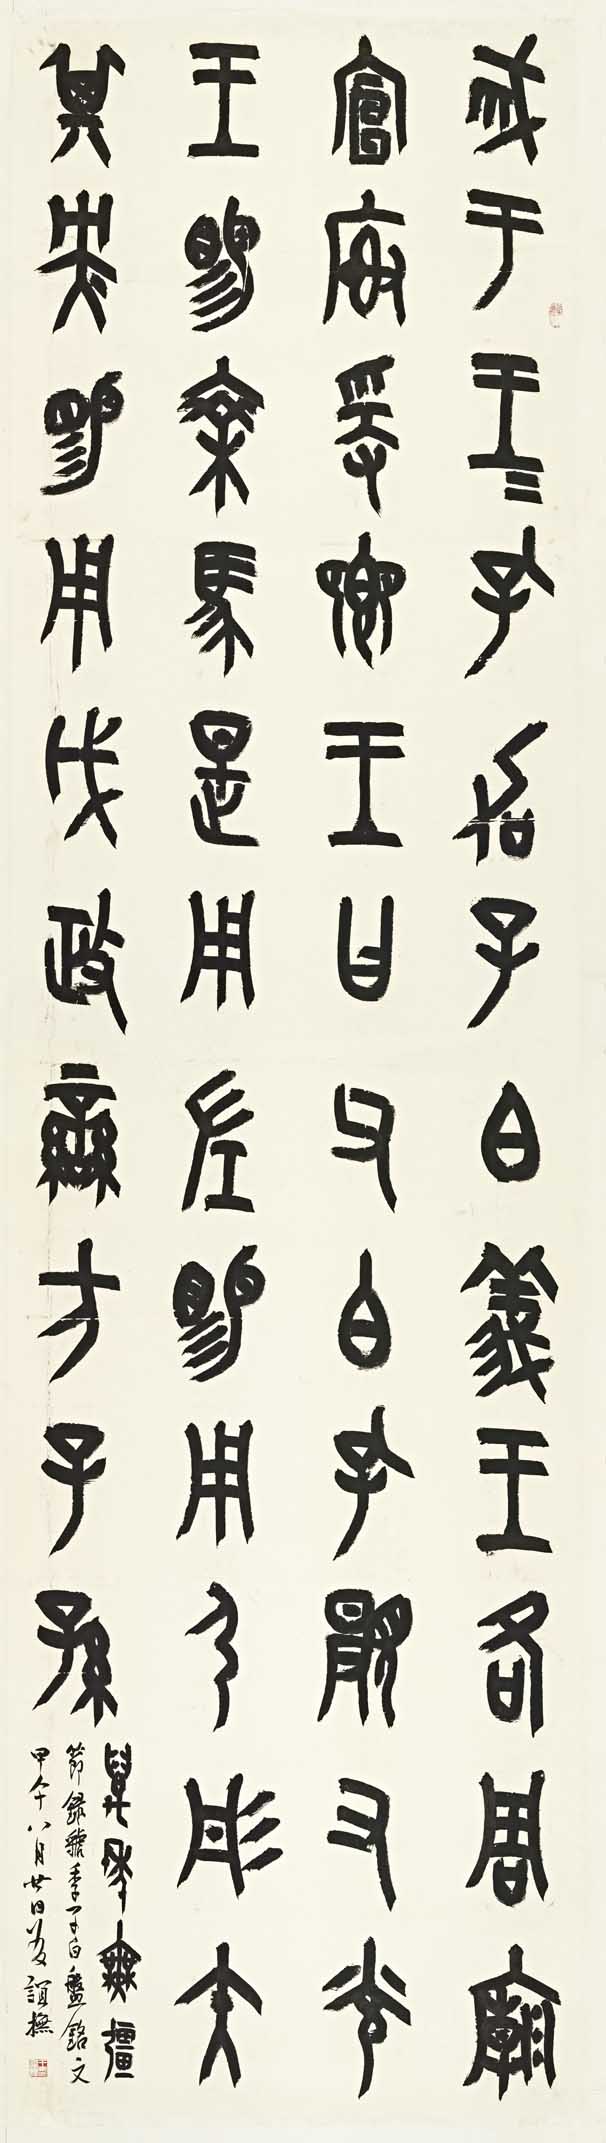 戓于王=孔加子白義王各周廟
宣廟爰鄉王曰父白孔顯又光
王賜乘馬是用左賜用弓彤矢
其央賜用戉政蠻方子孫
萬年無疆
節錄虢季子白盤銘文
甲午八月廿日友誼撫